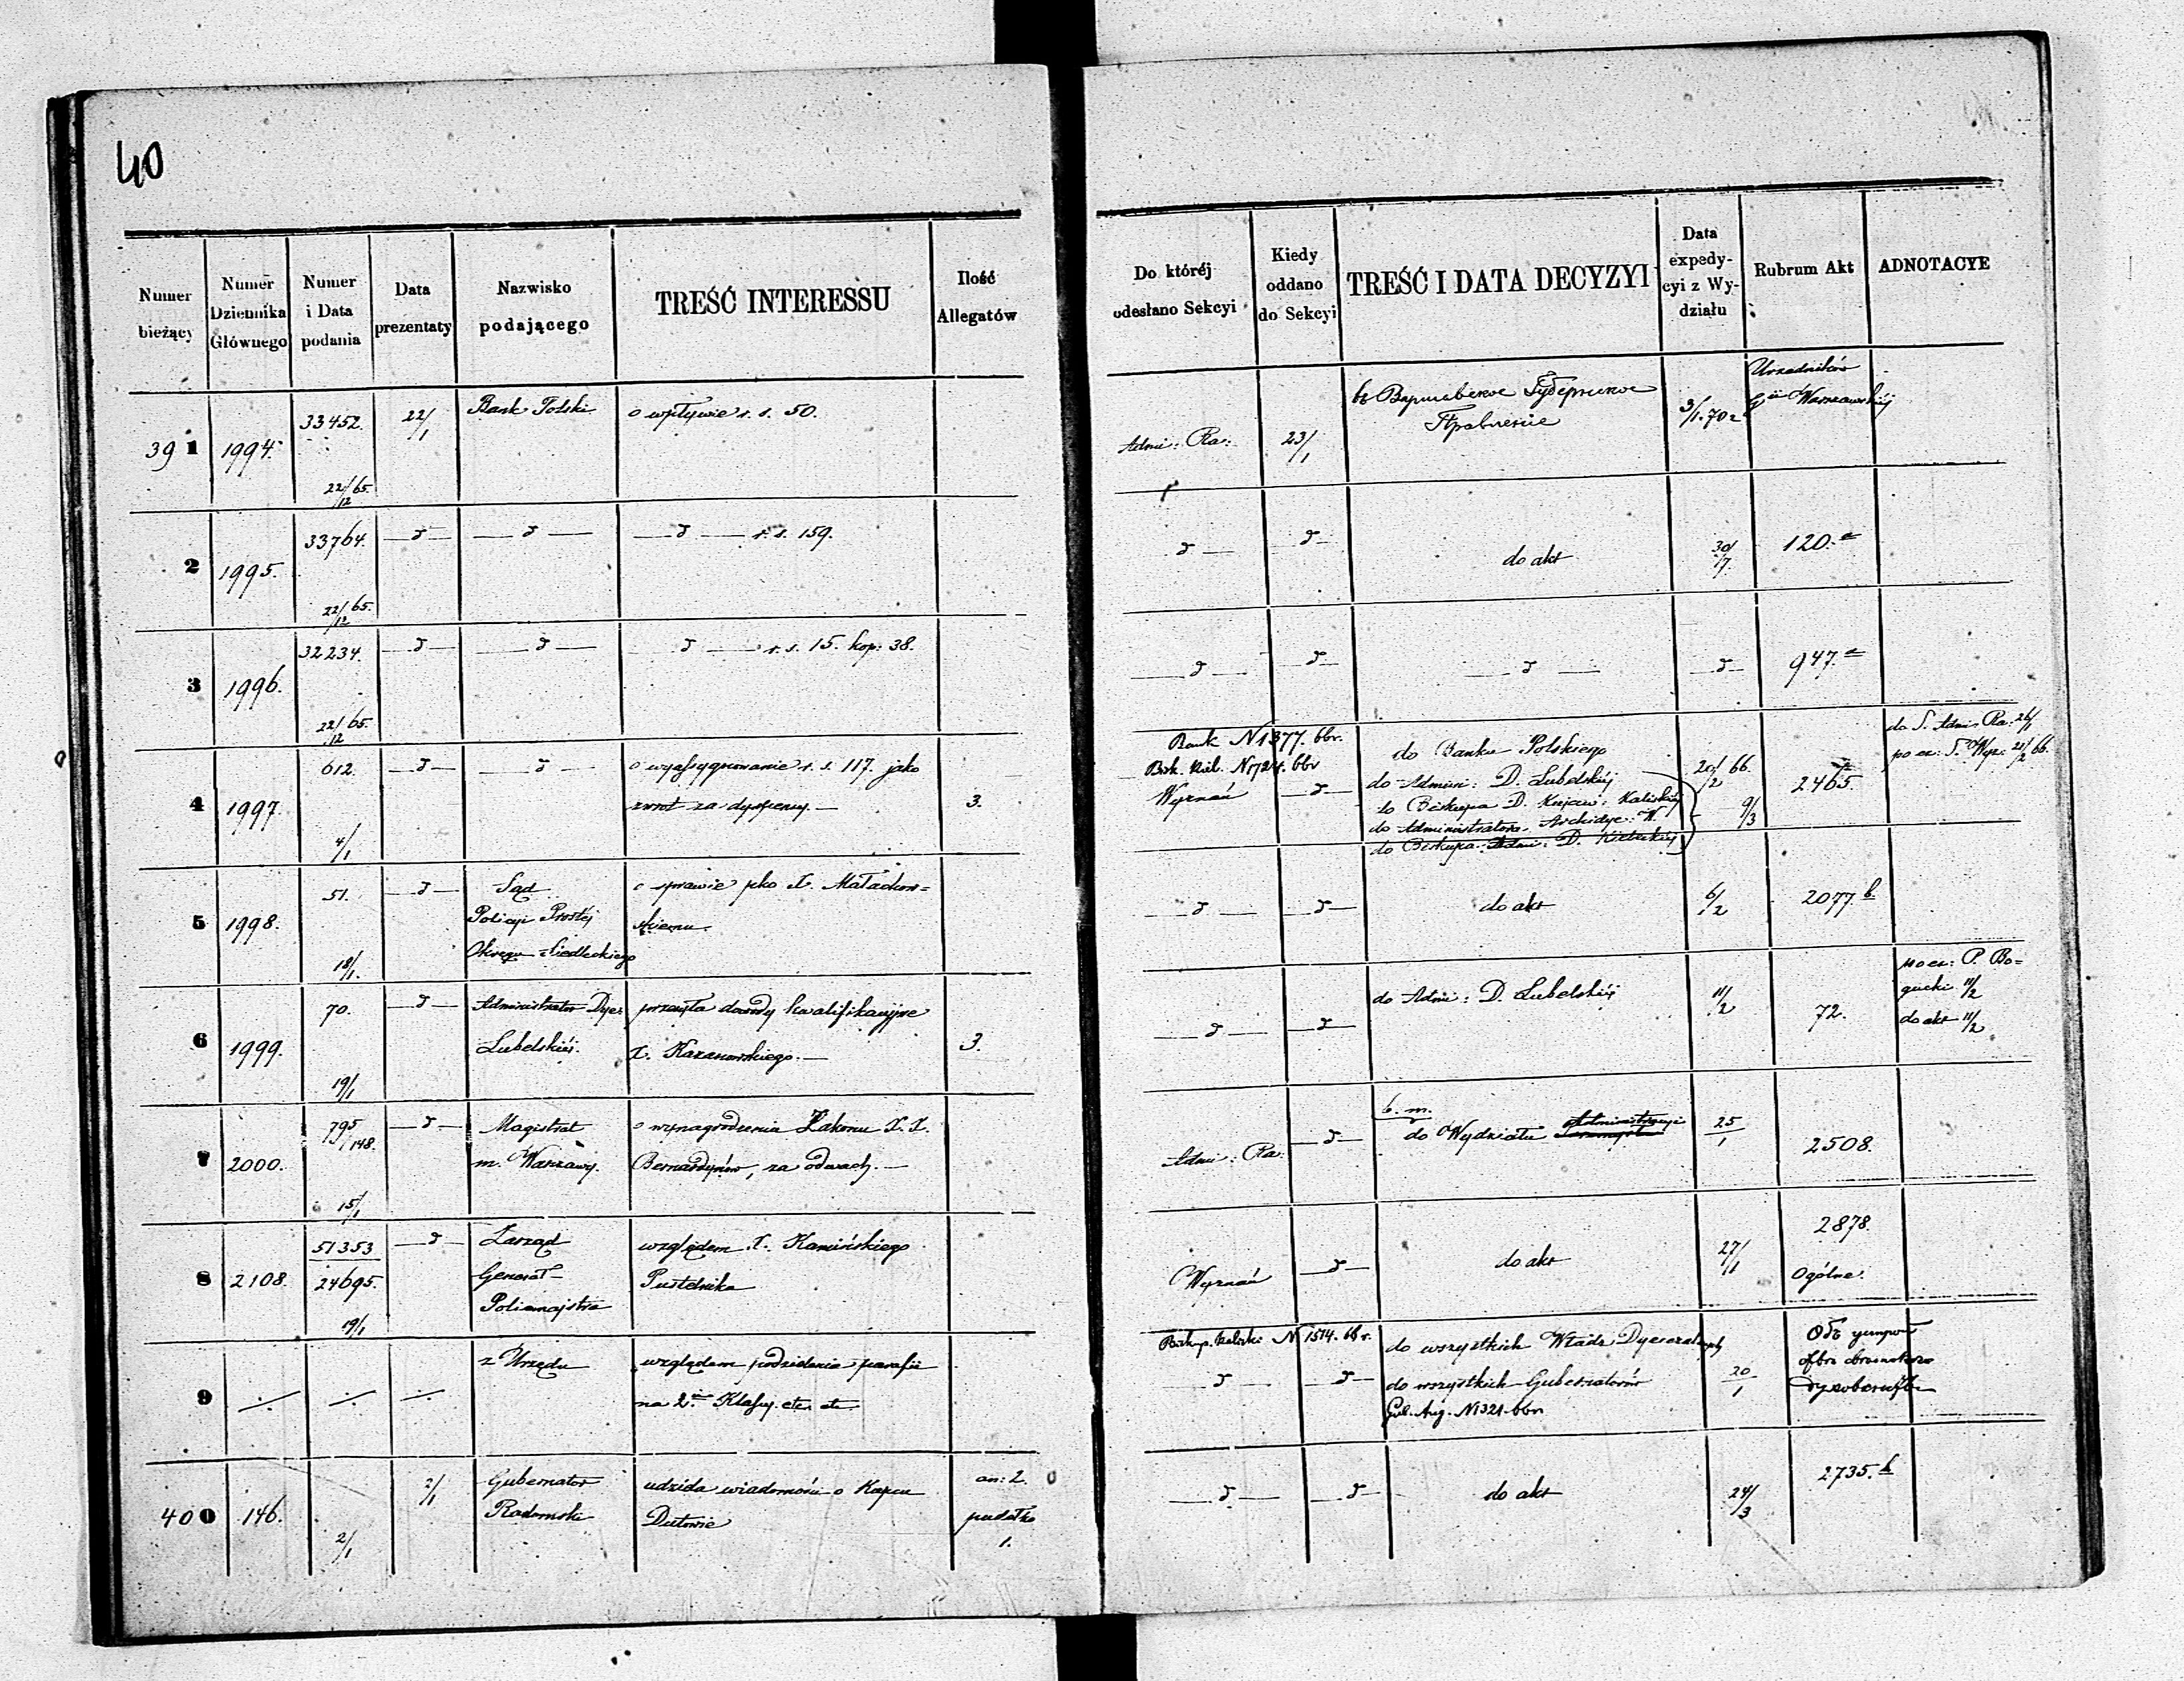 40
Numer bieżący
Numer Dziennika Głównego
Numer i Data podania
Data prezentaty
Nazwisko podającego
TREŚĆ INTERESSU
Ilość Allegatów
Do któréj odesłano Sekcyi
Kiedy oddano do Sekcyi
TREŚĆ I DATA DECYZYI
Data expedycyi z Wydziału
Rubrum Akt
ADNOTACYE
391 1994. 33452. 22/12 65. 22/1 Bank Polski o wpływie r. s. 50.
Admi: Ra: 23/1 3/1. 70 Urzędników
Gii Warszawskiéj
2 1995. 33764. 22/12 65. — d — — d — — d — r. s. 159.
— d — — d — do akt 30/7. 120. a
3 1996. 32234. 22/12 65. — d — — d — — d — r. s. 15. kop: 38.
— d — — d — — d — — d — 947. a
4 1997. 612. 4/1 — d — — d — o wyassygnowanie r. s. 117. jako
zwrot za dyspensy. — 3.
Bank N 1377. 66r.
Bisk. Kal. N 1724. 66r
Wyznań — d —
do Banku Polskiego
do Admini: D. Lubelskiéj
do Biskupa D. Kujaw: Kaliskiéj
do Administratora Archidye: W.
do Biskupa D. Kieleckiéj
20/2 66. 9/3 2465.
do S. Admi: Ra: 26/1
po ex: S. Wyz: 21/2 66.
5 1998. 51. 18/1. — d — Sąd
Policyi Prostéj
Okręgu Siedleckiego
o sprawie pko X. Małachow=
skiemu
— d — — d — do akt 6/2 2077. b
6 1999. 70. 19/1 — d — Administrator Dyec.
Lubelskiéj.
przesyła dowody kwalifikacyjne
X. Kazanowskiego. — 3.
— d — — d — do Admi: D. Lubelskiéj 11/2 72.
po ex: P. Bo=
gucki 11/2
do akt 11/2
7 2000. 795/148. 15/1 — d — Magistrat
m. Warszawy.
o wynagrodzenia Zakonu X. X.
Bernardynów, za odwach. —
Admi: Ra: — d — b. m.
do Wydziału Administracyi 25/1 2508.
8 2108. 51353 24695. 19/1 — d — Zarząd
Generał
Policmajstra
względem X. Kamińskiego
Pustelnika
Wyznań — d — do akt 27/1 2878.
Ogólne.
9 z Urzędu względem podzielenia parafii
na 2ie Klassy. etc. etc.
Biskup. Kaliski N 1514. 66r.
— d — — d —
do wszystkich Władz Dyecezalnych
do wszystkich Gubernatorów
Gub. Aug. N 1321. 66r
20/1
400 146. 2/1 2/1 Gubernator
Radomski
udziela wiadomości o Xięciu
an: 2.
pudełko
1.
— d — — d — do akt 24/3 2735. b